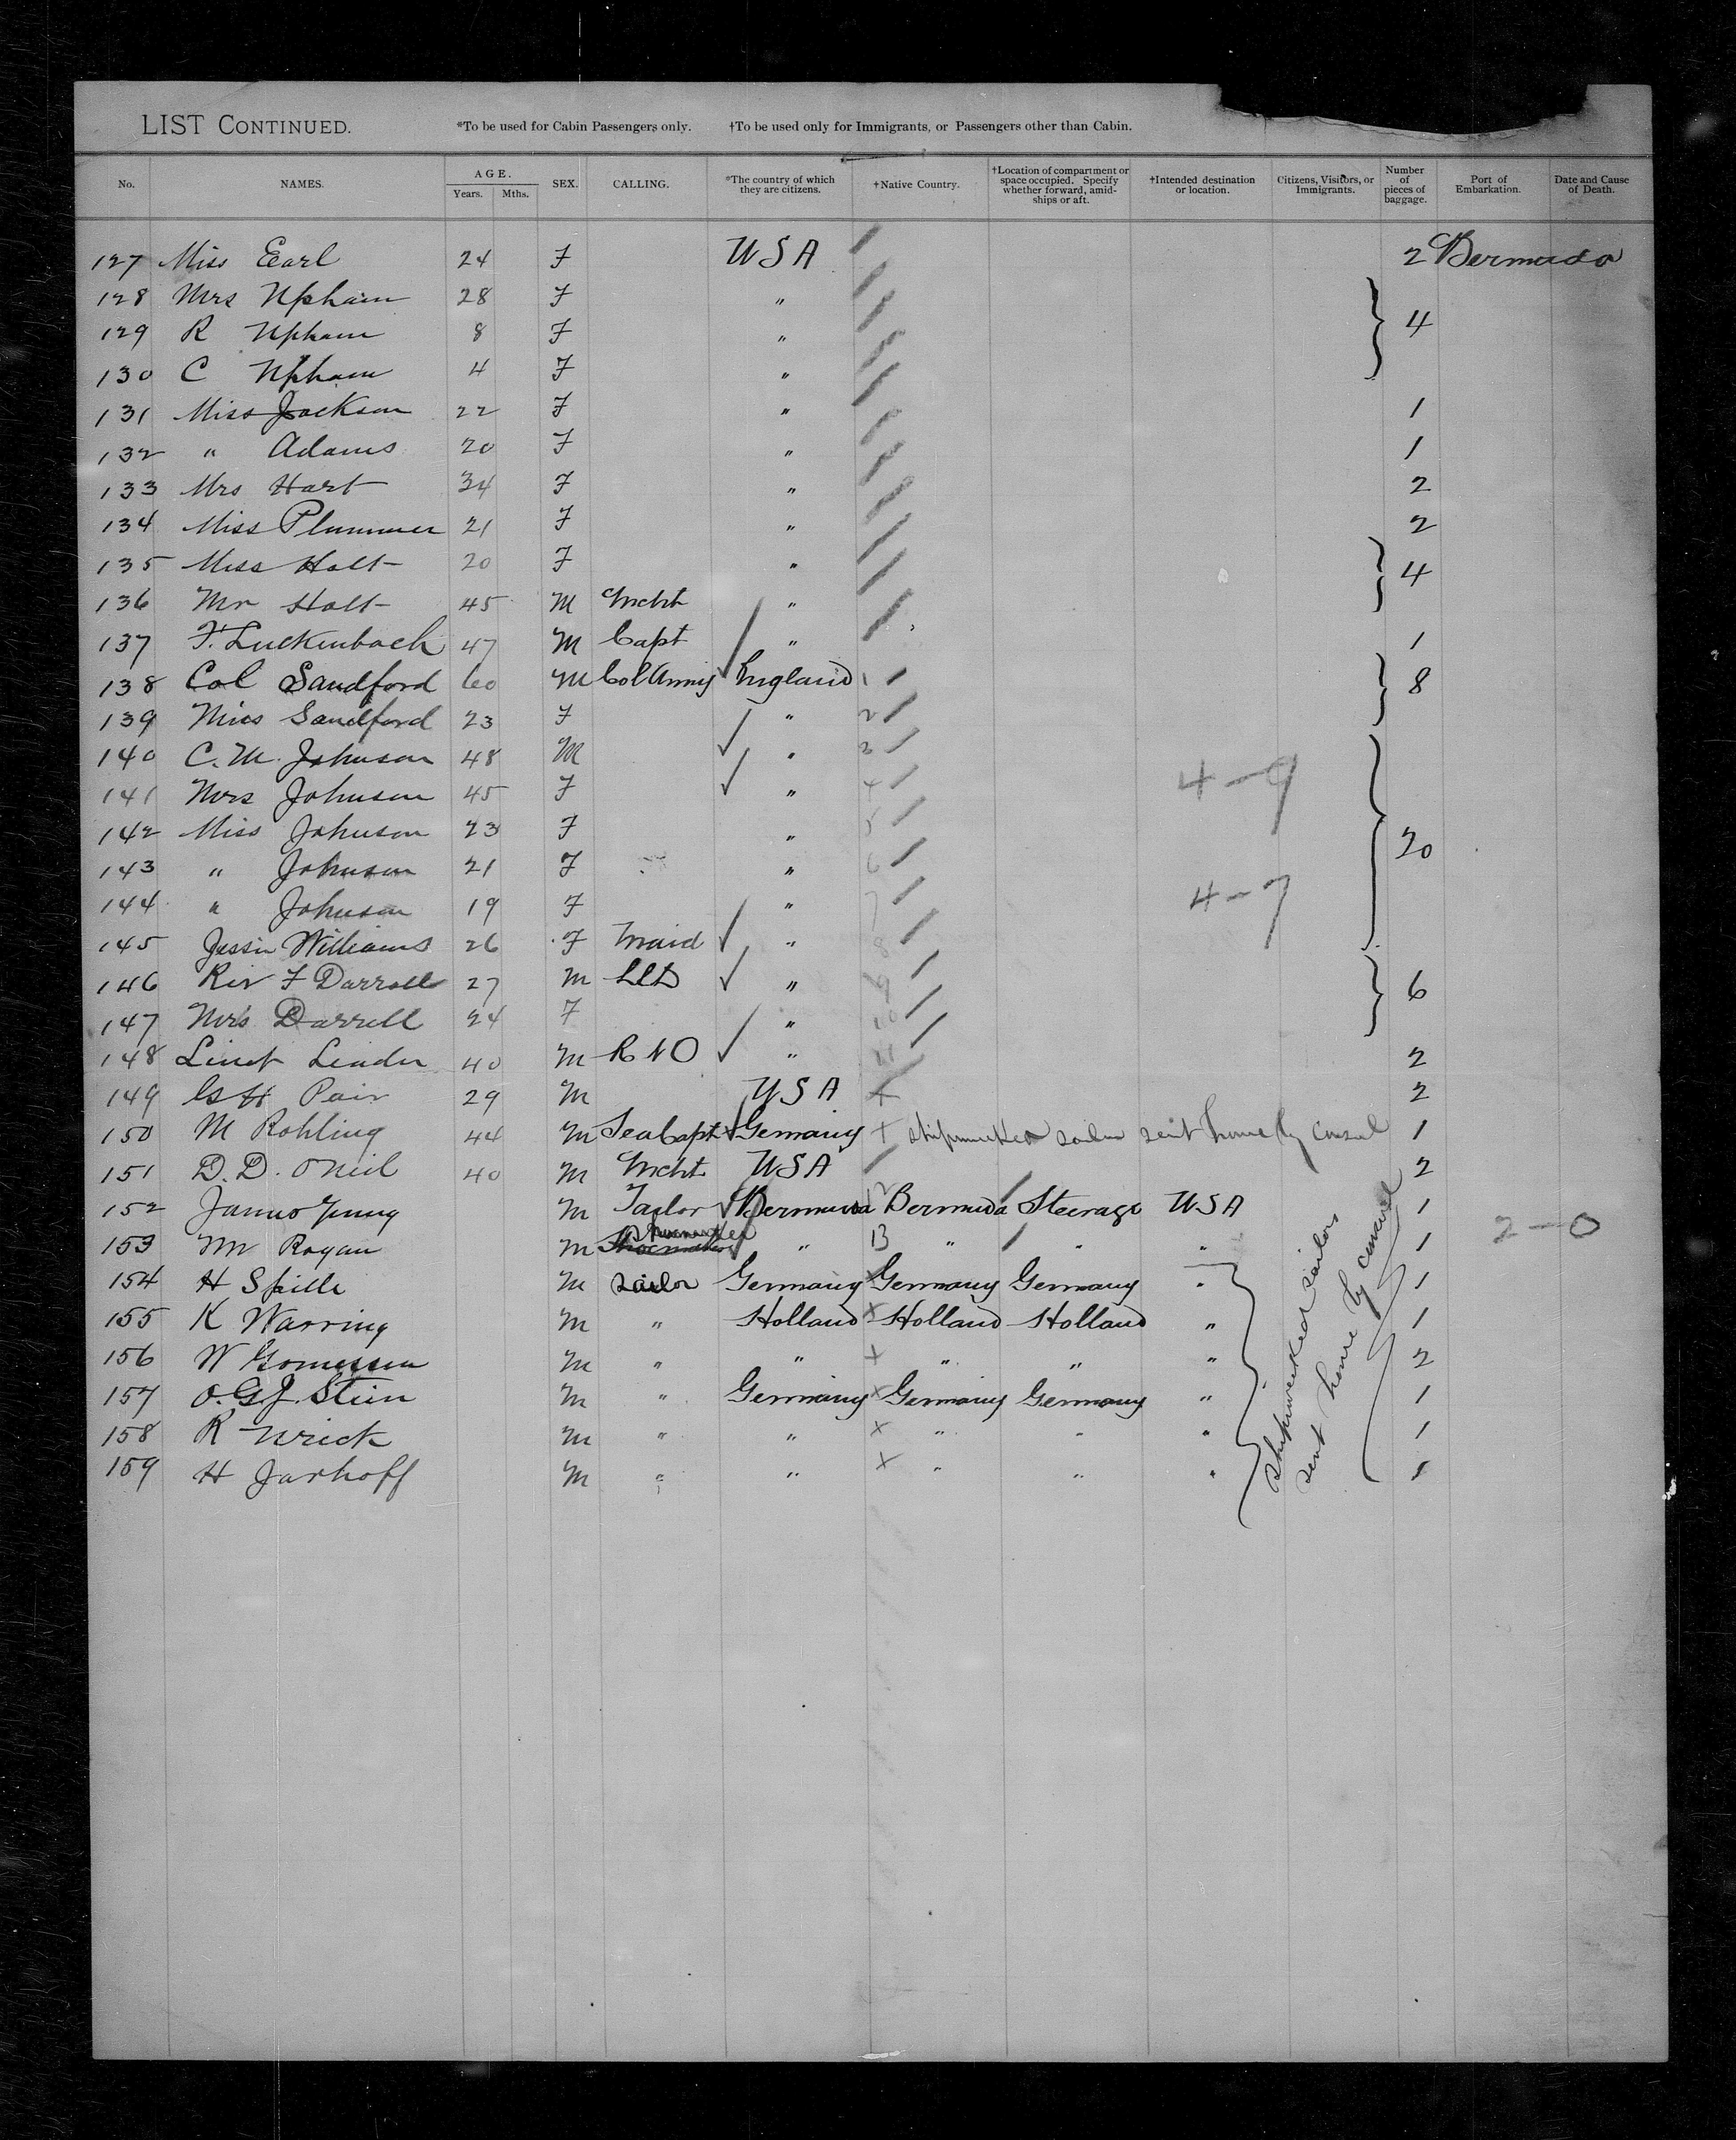 LIST CONTINUED. *To be used for Cabin Passengers only. †To be used only for Immigrants, or Passengers other than Cabin.
No. NAMES. AGE. Years. Mths. SEX. CALLING. *The country of which they are citizens. †Native Country. †Location of compartment or space occupied. Specify whether forward, amidships or aft. †Intended destination or location. Citizens, Visitors, or Immigrants. Number of pieces of baggage. Port of Embarkation. Date and Cause of Death.
127 Miss Earl 24 F USA 2 Bermuda
128 Mrs Upham 28 F "
129 R Upham 8 F " 4
130 C Upham 4 F "
131 Miss Jackson 22 F " 1
132 " Adams 20 F " 1
133 Mrs Hart 34 F " 2
134 Miss Plummer 21 F " 2
135 Miss Holt 20 F " 4
136 Mr Holt 45 M Mcht "
137 F. Luckenbach 47 M Capt " 1
138 Col Sandford 60 M Col Army England 1 8
139 Miss Sandford 23 F " 2
140 C. M. Johnson 48 M " 3
141 Mrs Johnson 45 F " 4 4-9
142 Miss Johnson 23 F " 5 20
143 " Johnson 21 F " 6
144 " Johnson 19 F " 7 4-7
145 Jessie Williams 26 F Maid " 8
146 Rev F Darrell 27 M LLD " 9 6
147 Mrs Darrell 24 F " 10
148 Lieut Leader 40 M R N O " 11 2
149 H Pair 29 M USA + 2
150 M Rohling 44 M Sea Capt Germany + shipwrecked sailor sent home by consul 1
151 D. D. ONeil 40 M Mcht USA 2
152 James Young M Taylor Bermuda 12 Bermuda Steerage USA 1
153 Wm Rogan M Shoemaker " 13 " " " 1 2-0
154 H Spille M sailor Germany x Germany Germany " 1
155 K Warring M " Holland x Holland Holland " 1
156 W M " " x " " " 2
157 O. G. J. Stein M " Germany x Germany Germany " 1
158 R Wrick M " " x " " " 1
159 H Jarhoff M " " x " " " 1
shipwrecked sailors
sent home by consul